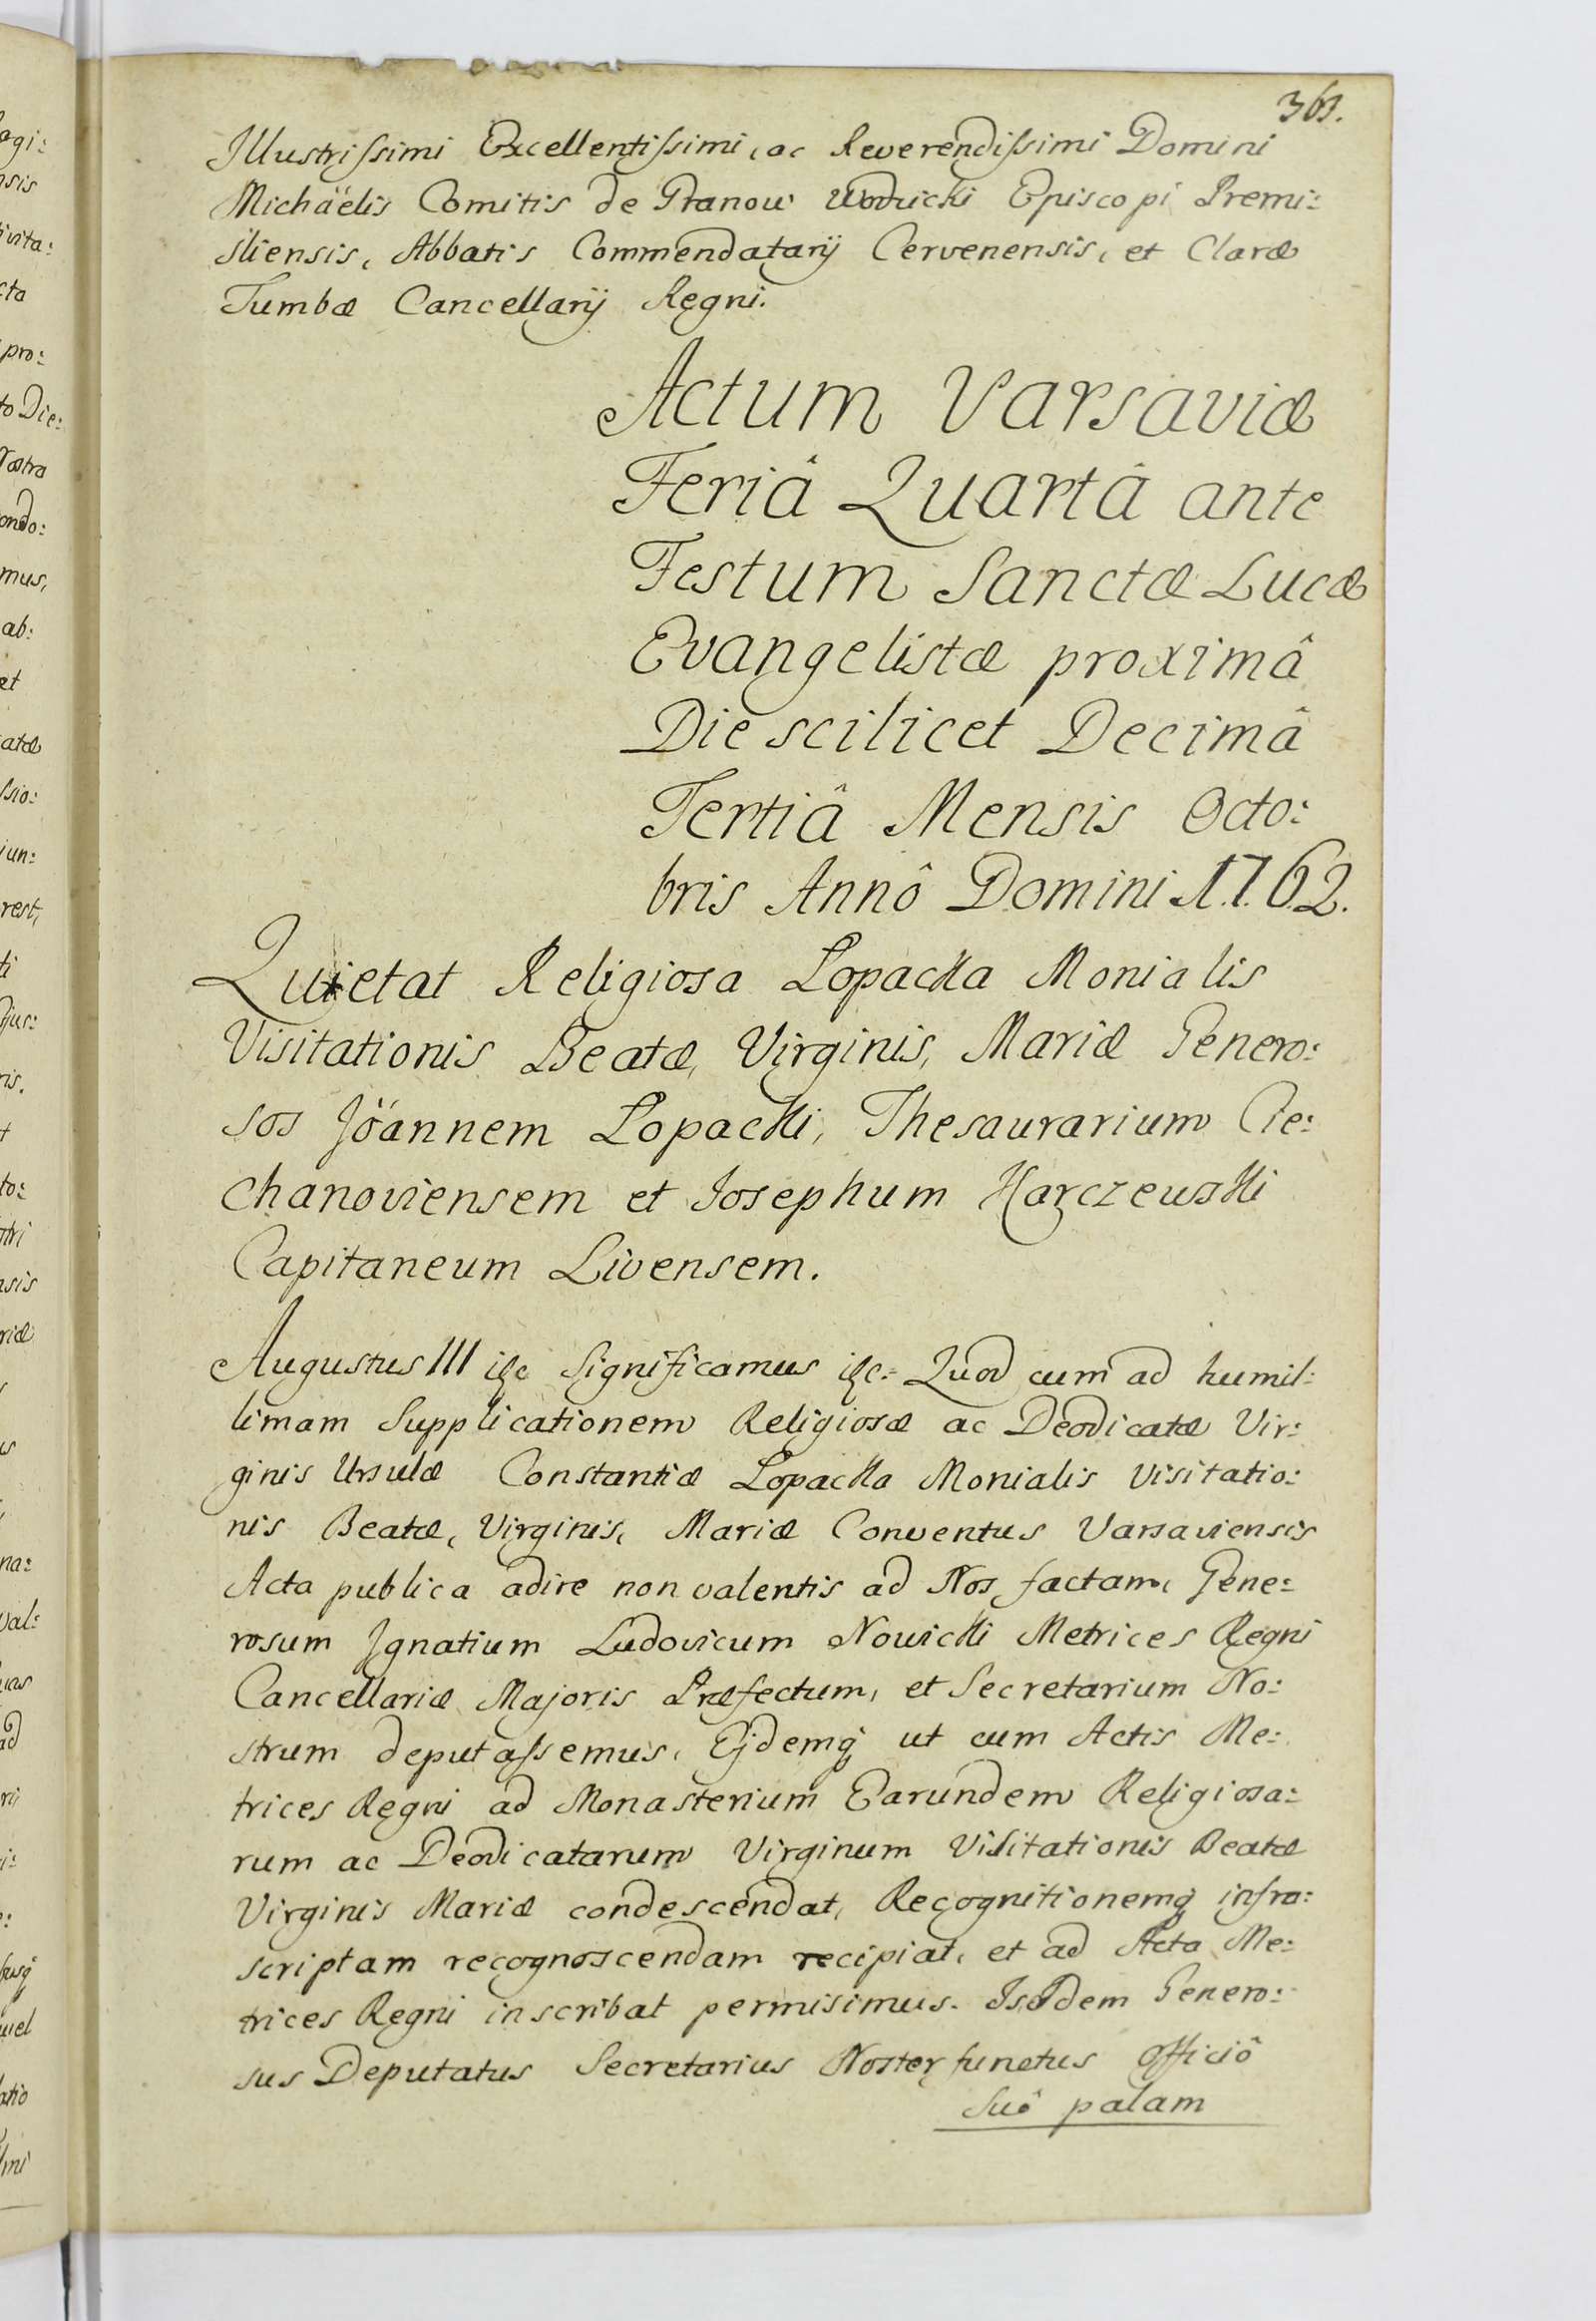 361.
Illustrissimi Excellentissimi, ac Reverendissimi Domini
Michäelis Comitis de Granow Wodzicki Episcopi Premi:
sliensis, Abbatis Commendatarij Cervenensis, et Claræ
Tumbæ Cancellarij Regni.
Actum Varsaviæ
Feriâ Quartâ ante
Festum Sanctæ Lucæ
Evangelistæ proximâ
Die scilicet Decimâ
Tertiâ Mensis Octo:
bris Annô Domini 1762.
Quietat Religiosa Łopacka Monialis
Visitationis Beatæ, Virginis, Mariæ Genero:
sos Jöannem Łopacki, Thesaurarium Cie:
chanoviensem et Josephum Karczewski
Capitaneum Livensem.
Augustus III etc Significamus etc. Quod cum ad humil:
limam Supplicationem Religiosæ ac Deodicatæ Vir:
ginis Ursulæ Constantiæ Łopacka Monialis Visitatio:
nis Beatæ, Virginis, Mariæ Conventus Varsaviensis
Acta publica adire non valentis ad Nos factam, Gene:
rosum Ignatium Ludovicum Nowicki Metrices Regni
Cancellariæ Majoris Præfectum, et Secretarium No:
strum deputassemus, Ejdemq̃ ut cum Actis Me:
trices Regni ad Monasterium Earundem Religiosa:
rum ac Deodicatarum Virginum Visitationis Beatæ
Virginis Mariæ condescendat, Recognitionemq̃ infra:
scriptam recognoscendam recipiat, et ad Acta Me:
trices Regni inscribat permisimus. Isdem Genero:
sus Deputatus Secretarius Noster functus Officiô
Suô palam